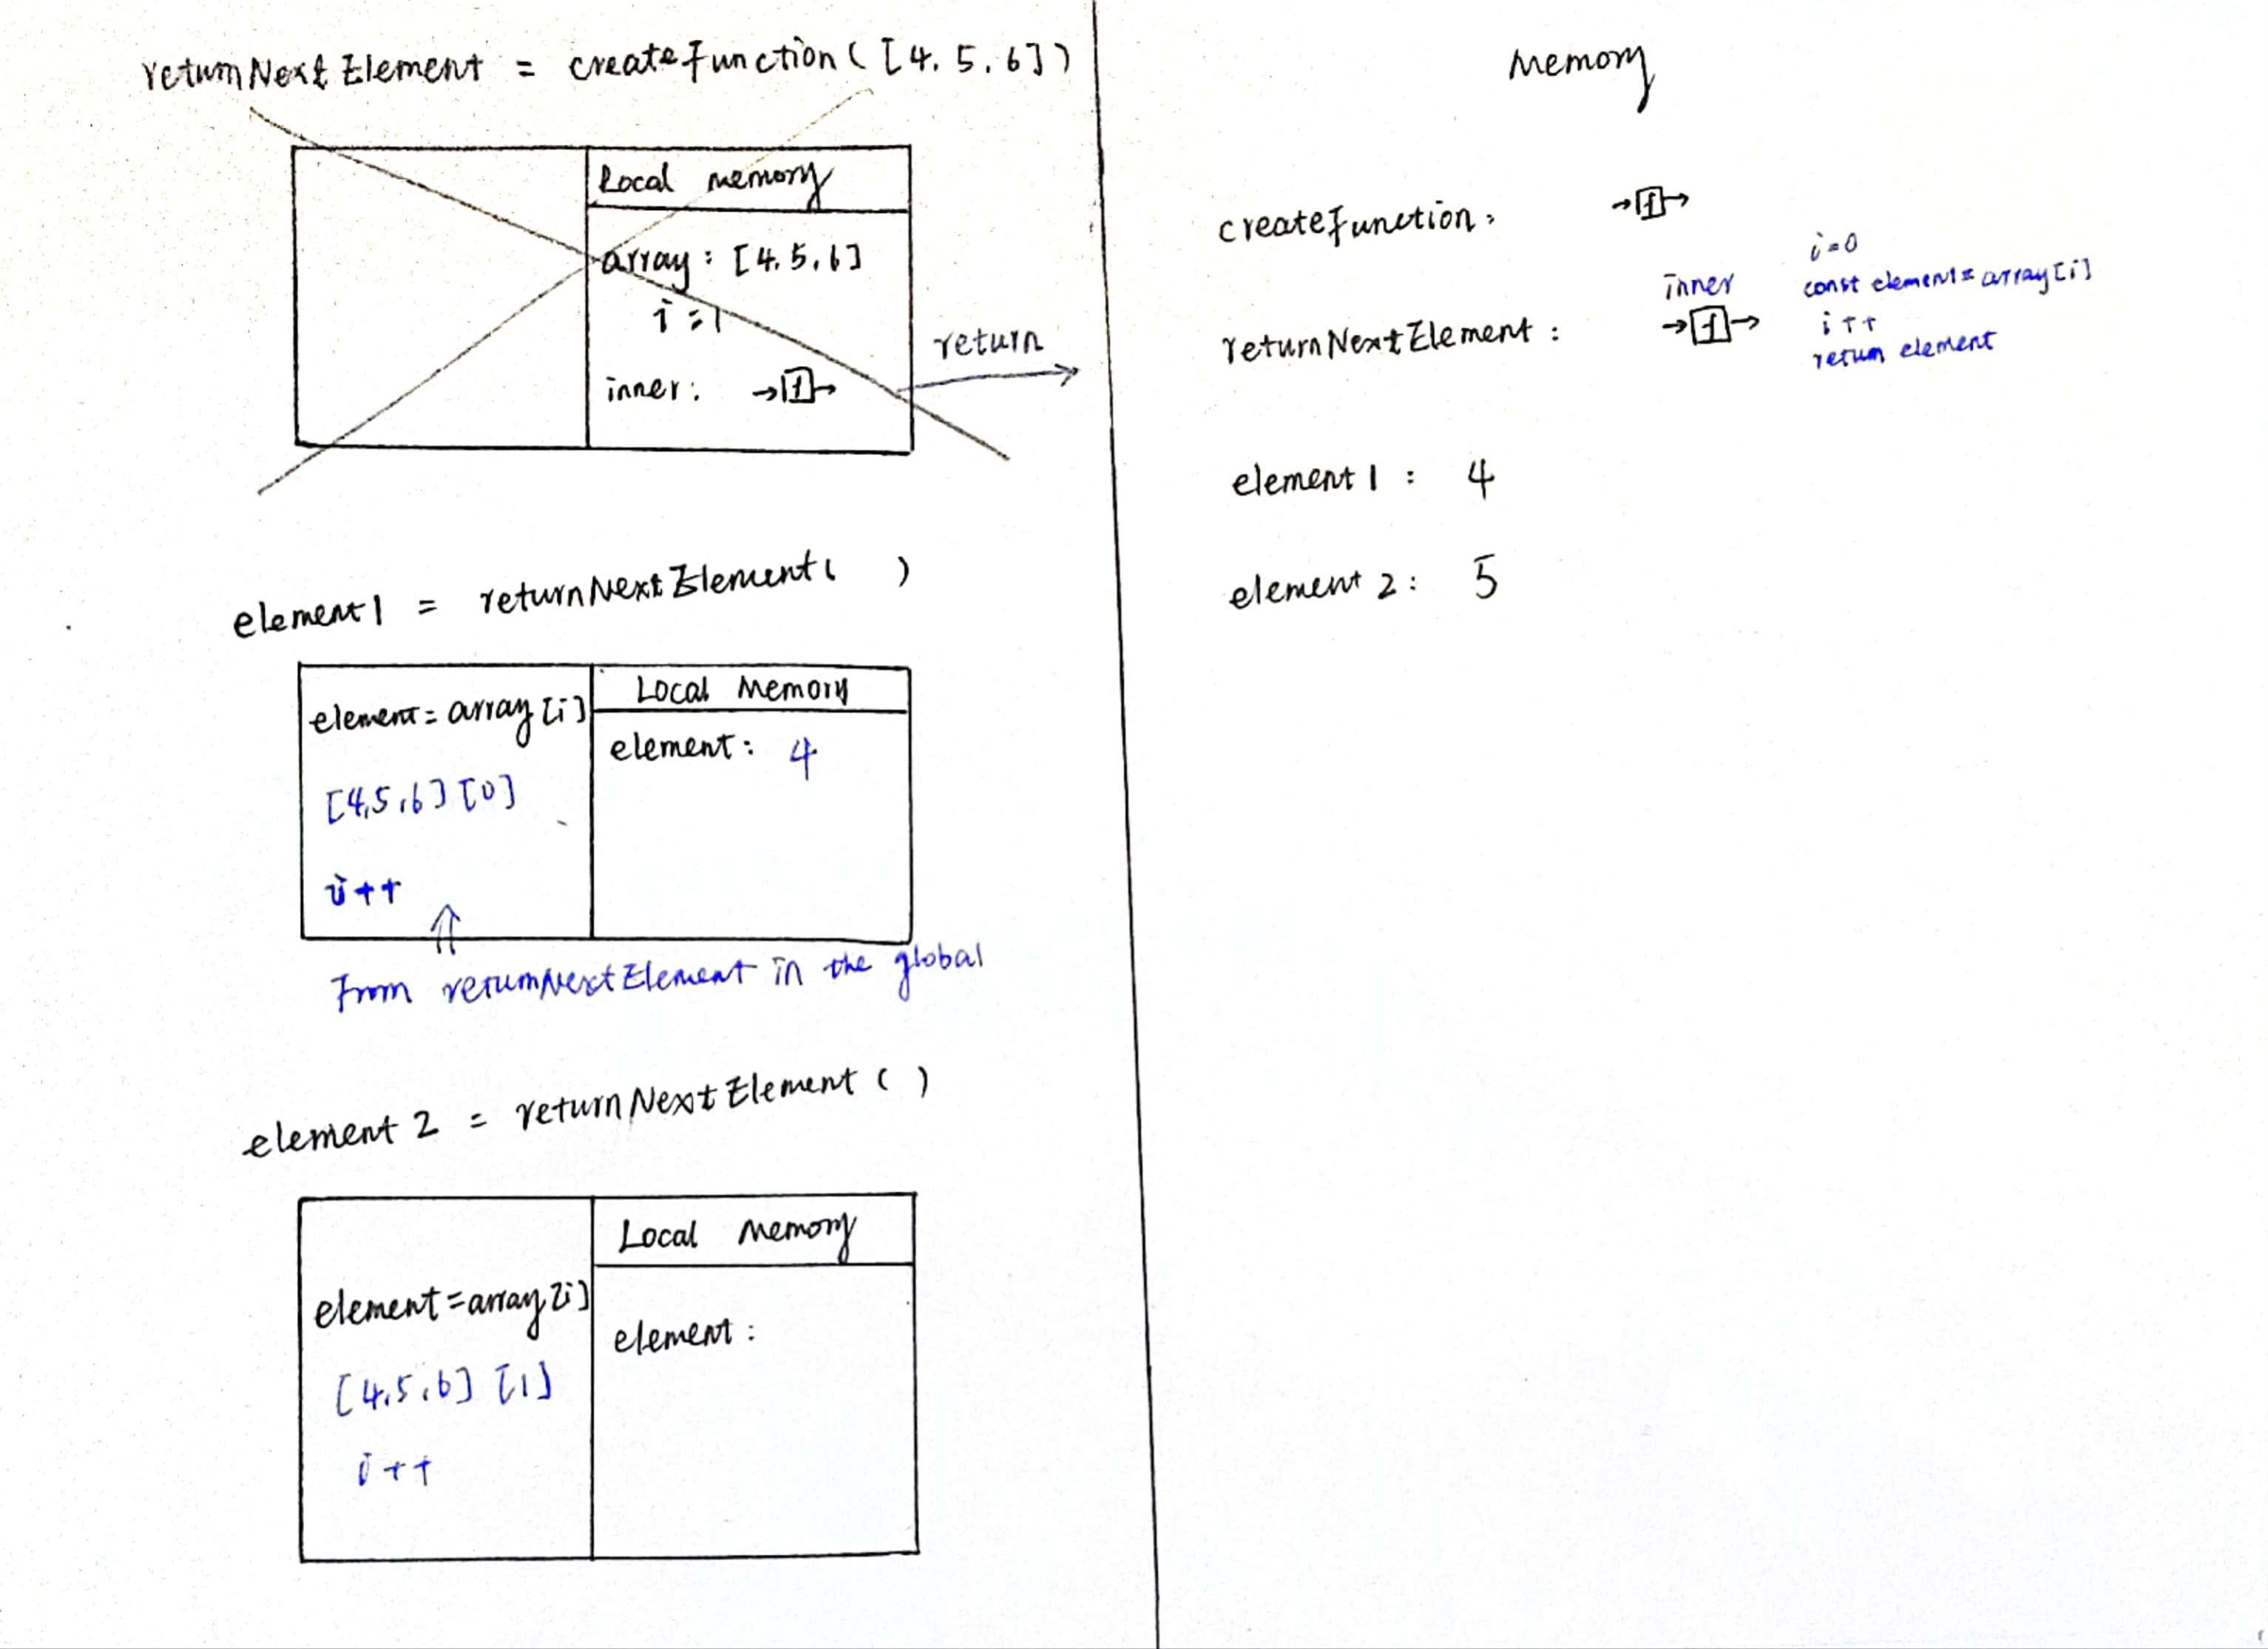 returnNextElement = createfunction([4, 5, 6])
Local memory
array: [4, 5, 6]
i = 1
inner: →[f]→
return
element1 = returnNextElement( )
element = array[i]
[4,5,6][0]
i++
Local Memory
element: 4
From returnNextElement in the global
element 2 = returnNextElement ( )
element = array[i]
[4,5,6] [1]
i++
Local Memory
element:
Memory
createfunction: →[f]→
returnNextElement: inner →[f]→
i=0
const element = array[i]
i++
return element
element 1 : 4
element 2 : 5